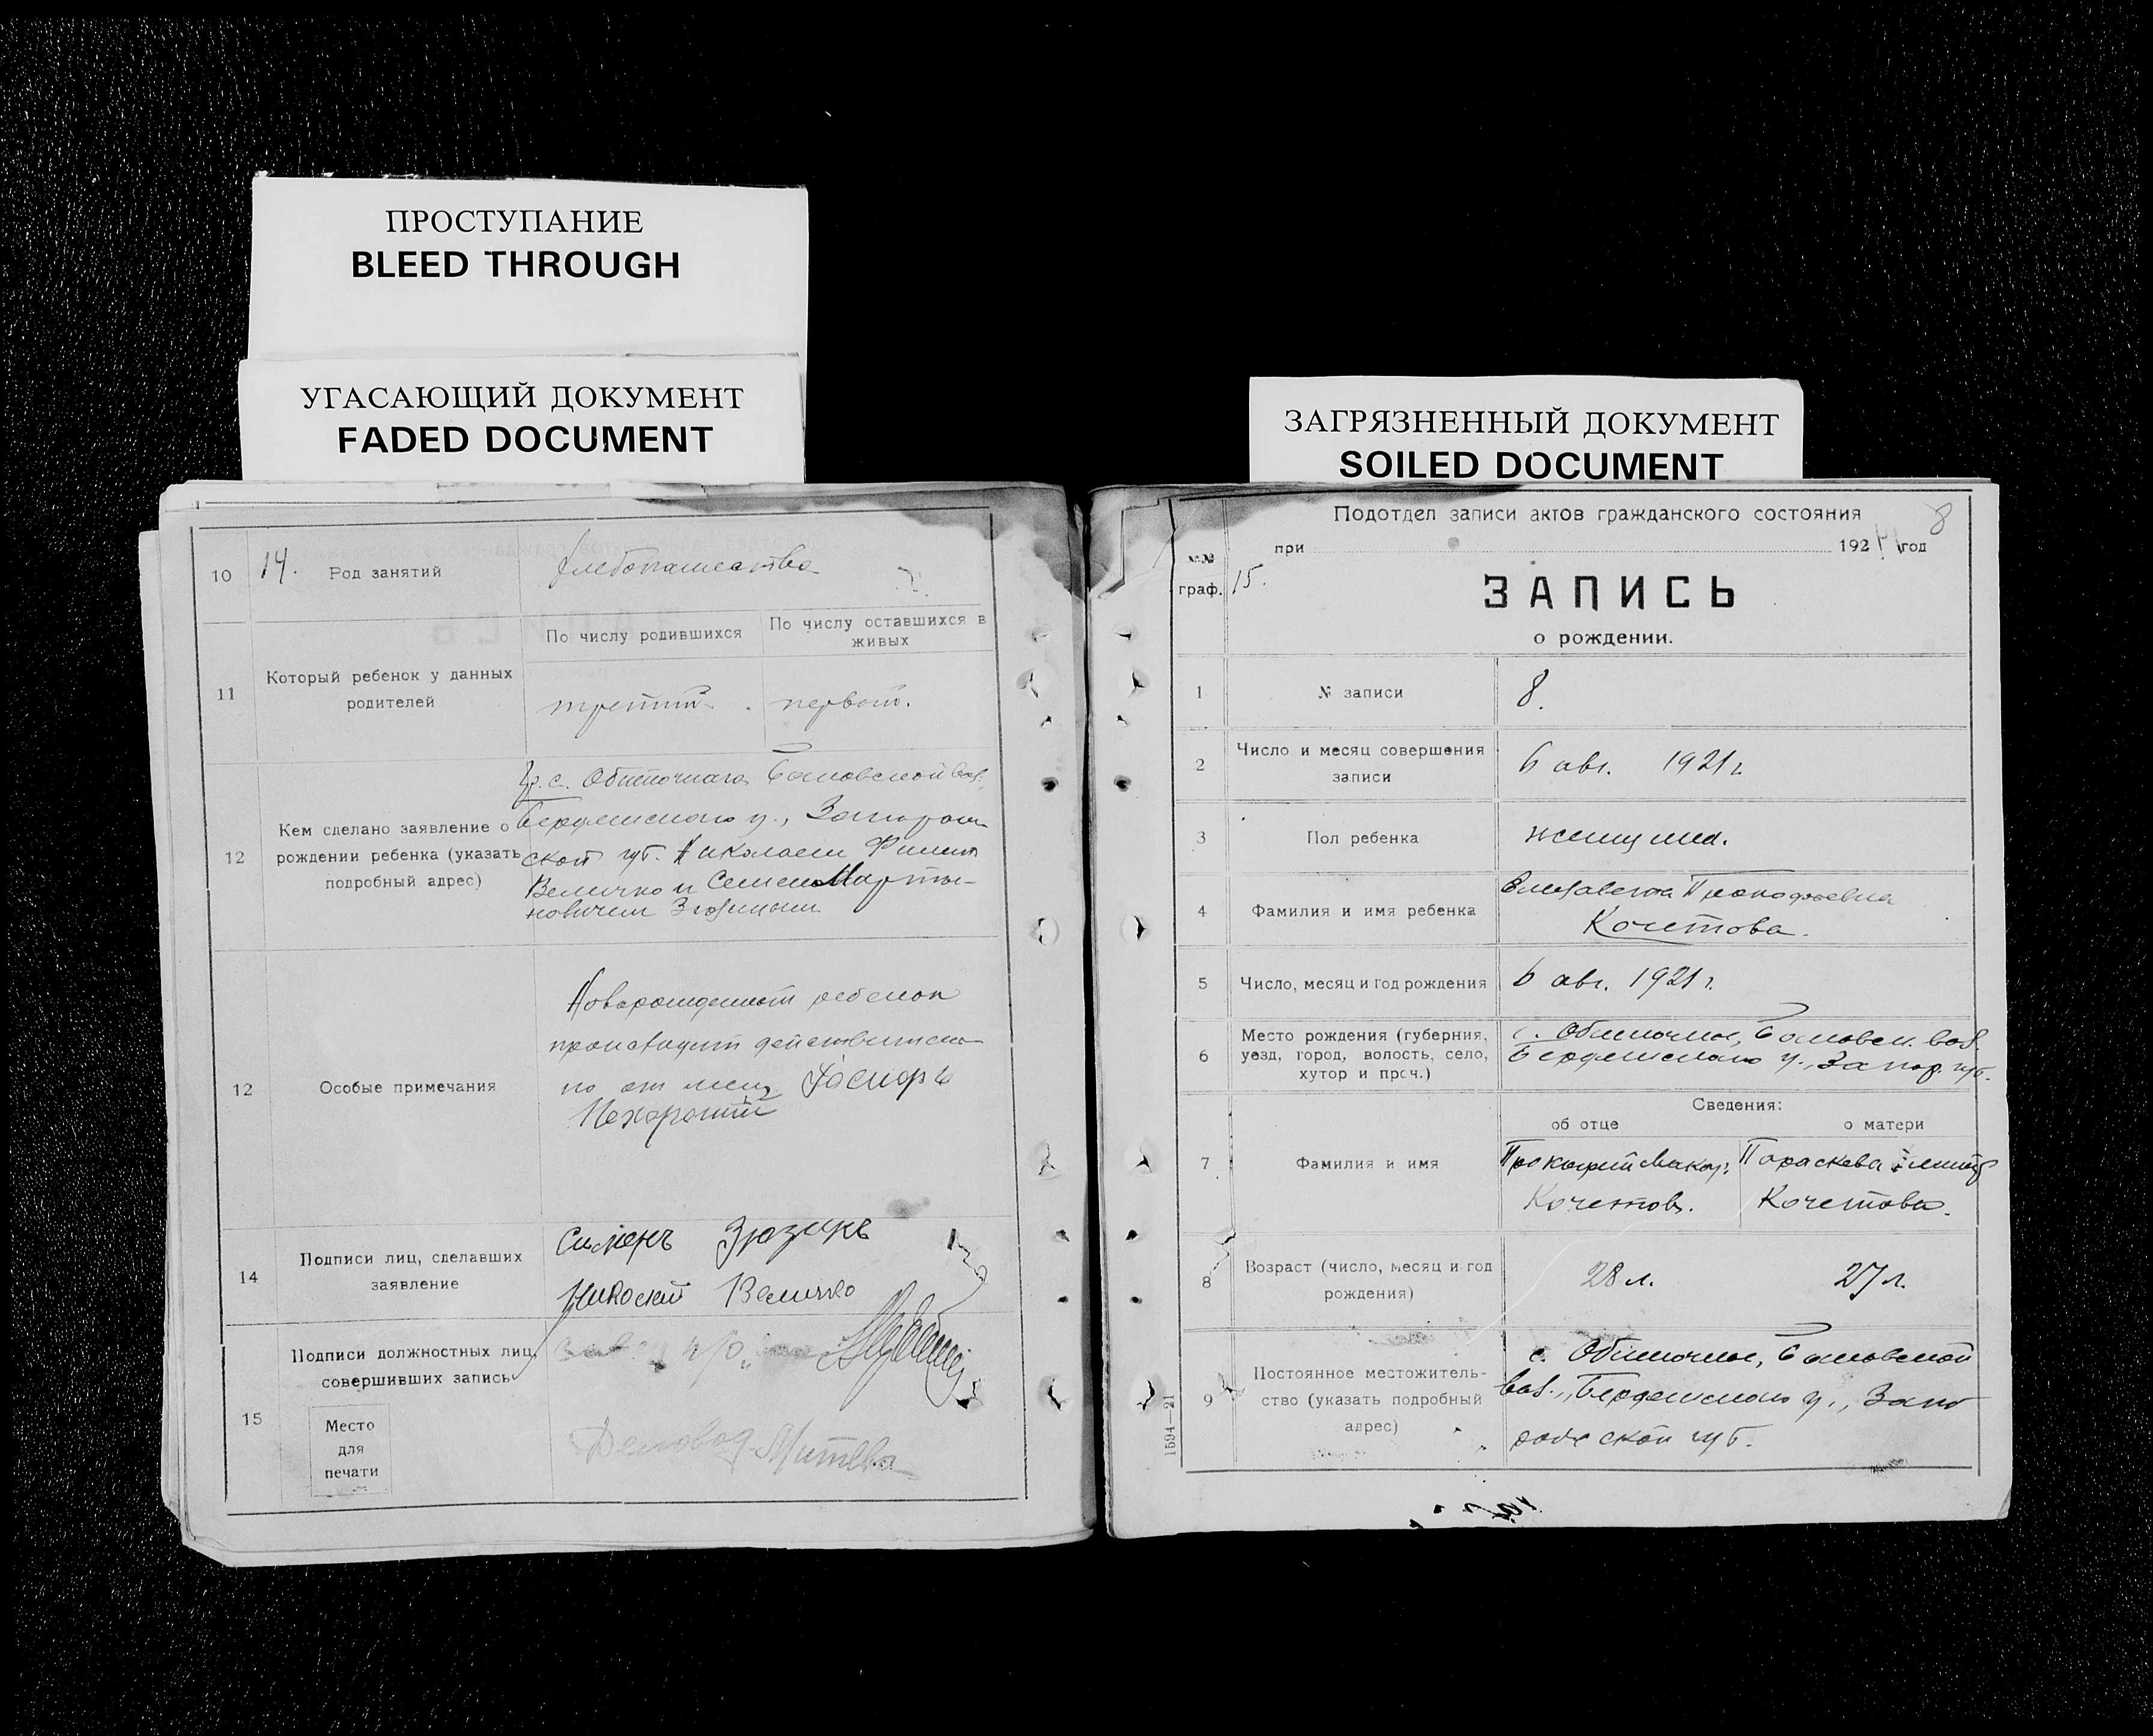 ПРОСТУПАНИЕ
BLEED THROUGH
УГАСАЮЩИЙ ДОКУМЕНТ
FADED DOCUMENT
ЗАГРЯЗНЕННЫЙ ДОКУМЕНТ
SOILED DOCUMENT
14.
10 Род занятий хлебопашество
11 Который ребенок у данных родителей
По числу родившихся
По числу оставшихся в живых
третий. первый.
12 Кем сделано заявление о
рождении ребенка (указать
подробный адрес)
Гр. с. Обиточнаго,
Бердянского у.,
ской губ. Николаем
Величко и Семеном Марты-
новичем Зюзиным
12 Особые примечания
Новорожденный ребенок
происходит действитель
но от
14 Подписи лиц, сделавших
заявление
Зюзинъ
Величко
15 Подписи должностных лиц,
совершивших запись
Место
для
печати
Деловод.
8
Подотдел записи актов гражданского состояния
при 1921 год
№№
граф.
15.
ЗАПИСЬ
о рождении.
1 № записи 8.
2 Число и месяц совершения
записи
6 авг. 1921 г.
3 Пол ребенка женщина.
4 Фамилия и имя ребенка
Елизавета Прокофьевна
Кочетова.
5 Число, месяц и год рождения 6 авг. 1921 г.
6 Место рождения (губерния,
уезд, город, волость, село,
хутор и проч.)
с. Обиточное,
Бердянского у., Запор. губ.
Сведения:
об отце о матери
7 Фамилия и имя
Прокофий Макар. Параскева
Кочетов. Кочетова.
8 Возраст (число, месяц и год
рождения)
28 л. 27 л.
9 Постоянное местожитель-
ство (указать подробный
адрес)
с. Обиточное,
вол., Бердянского у., Запо
рожской губ.
1594—21